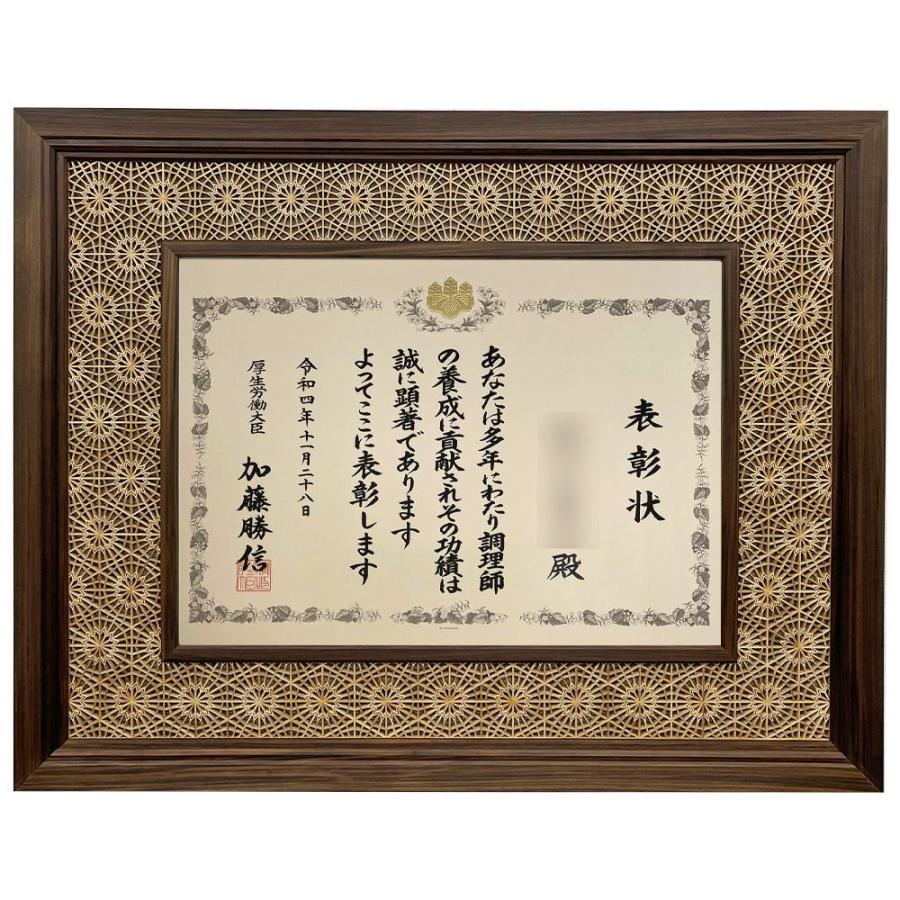 表彰状
殿
あなたは多年にわたり調理師
の養成に貢献されその功績は
誠に顕著であります
よってここに表彰します
令和四年十一月二十八日
厚生労働大臣
加藤勝信